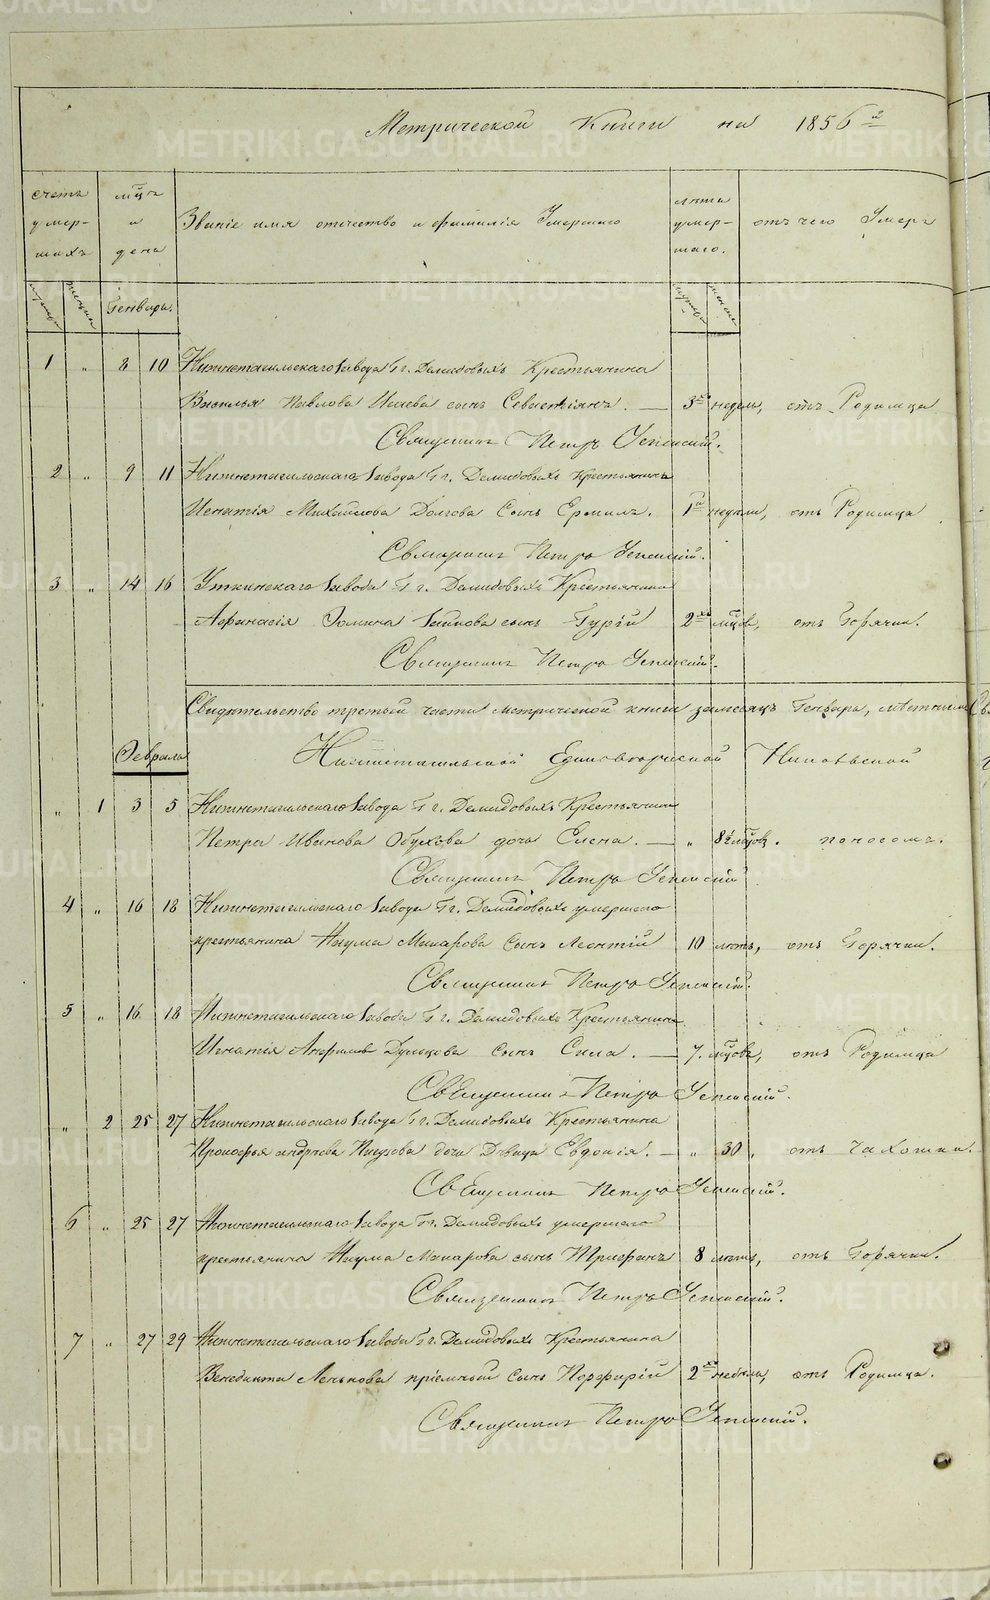 Метрической Книги на 1856й
счетъ умер-шихъ
мцъ и день
Званіе имя отчество и фамилія Умершаго
лѣта умер-шаго.
отъ чего Умеръ
Генварь.
1 „ 8 10 Нижнетагильскаго Завода Гг. Демидовыхъ Крестьянина
Василья Павлова сынъ Севастіянъ. — 3хъ недель, отъ Родимца
Священникъ Петръ Успенскій.
2 „ 9 11 Нижнетагильскаго Завода Гг. Демидовыхъ Крестьянина
Игнатія Михайлова Долгова Сынъ Ермилъ. 1й недели, отъ Родимца
Священникъ Петръ Успенскій.
3 „ 14 16 Уткинскаго Завода Гг. Демидовыхъ Крестьянина
Афанасія Фомина сынъ Гурій 2хъ мцовъ, отъ Горячки.
Священникъ Петръ Успенскій.
Свидѣтельство третьей части метрической книги за месяцъ Генварь,
Нижнетагильской Единоверческой Никольской
Февраль
„ 1 3 5 Нижнетагильскаго Завода Гг. Демидовыхъ Крестьянина
Петра Иванова Обухова дочь Елена. — „ 8 мцовъ. поносомъ.
Священникъ Петръ Успенскій
4 „ 16 18 Нижнетагильскаго Завода Гг. Демидовыхъ умершаго
крестьянина Наума Макарова Сынъ Леонтій 10 лѣтъ, отъ Горячки.
Священникъ Петръ Успенскій.
5 „ 16 18 Нижнетагильскаго Завода Гг. Демидовыхъ Крестьянина
Игнатія сынъ Сила. — 7. мцовъ, отъ Родимца
Священникъ Петръ Успенскій.
„ 2 25 27 Нижнетагильскаго Завода Гг. Демидовыхъ Крестьянина
Прокофья андреева дочь Дѣвица Евдокія. — „ 30 „ отъ Чахотки.
Священникъ Петръ Успенскій.
6 „ 25 27 Нижнетагильскаго Завода Гг. Демидовыхъ умершаго
крестьянина Наума Макарова сынъ Трифонъ 8 лѣтъ, отъ Горячки.
Священникъ Петръ Успенскій.
7 „ 27 29 Нижнетагильскаго Завода Гг. Демидовыхъ Крестьянина
Венедикта пріемный сынъ Порфирій 2хъ недель, отъ Родимца.
Священникъ Петръ Успенскій.
METRIKI.GASO-URAL.RU